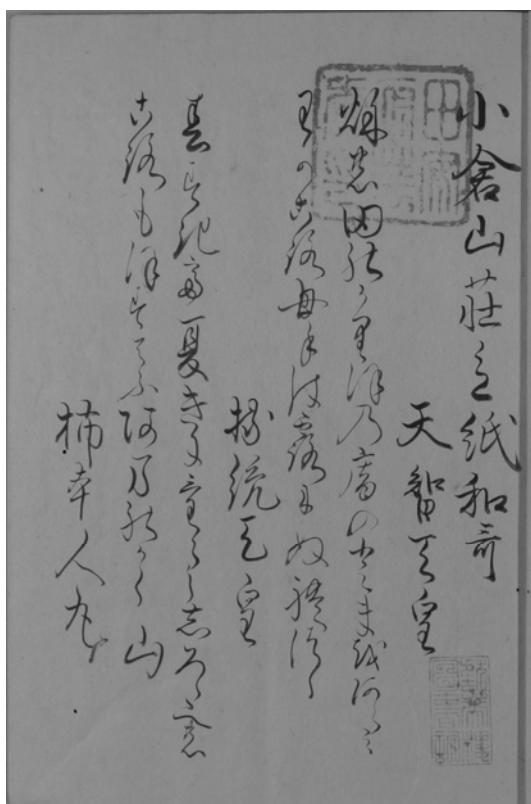 小倉山莊色紙和哥
天智天皇
秋の田のかりほの庵のとまをあらみ
わかころも手は露にぬれつゝ
持統天皇
春すきて夏きにけらし志ろたへの
ころもほすてふあまのかく山
柿本人丸